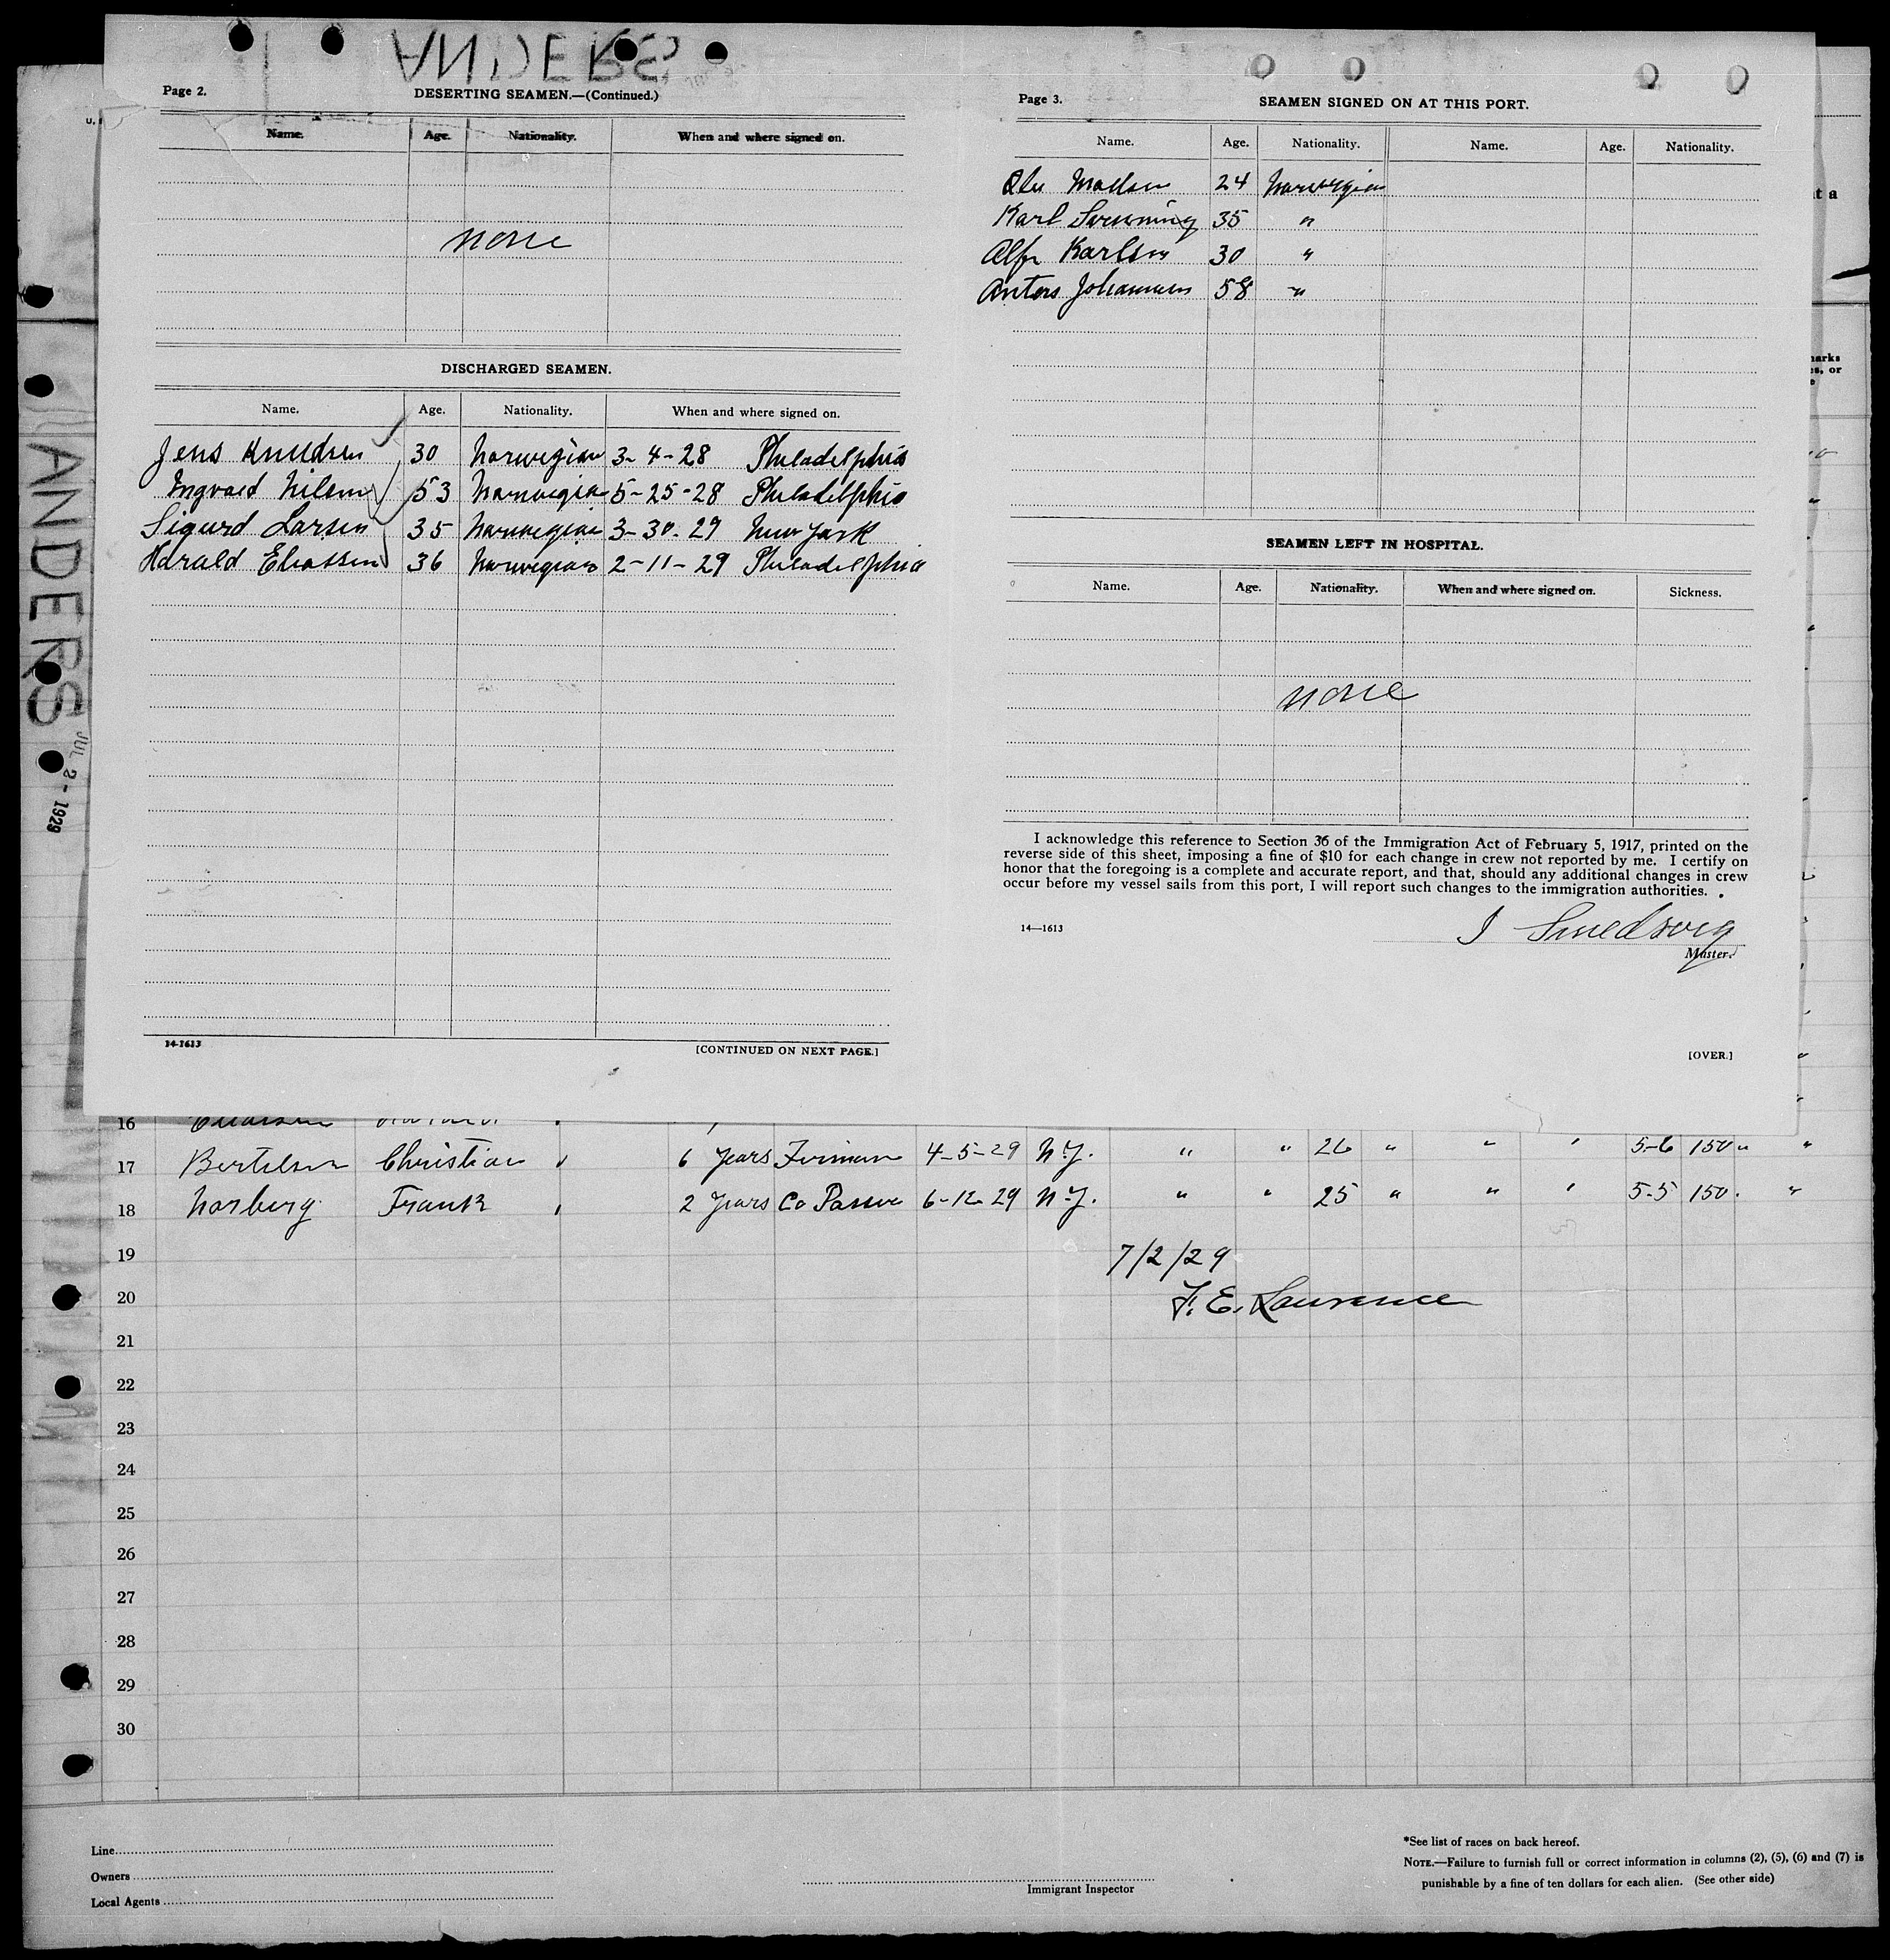 ANDERS
Page 2.
DESERTING SEAMEN.—(Continued.)
Name. Age. Nationality. When and where signed on.
none
DISCHARGED SEAMEN.
Name. Age. Nationality. When and where signed on.
Jens Knudsen 30 Norwegian 3-4-28 Philadelphia
Ingvald Nilsen 53 Norwegian 5-25-28 Philadelphia
Sigurd Larsen 35 Norwegian 3-30-29 New York
Harald Eliassen 36 Norwegian 2-11-29 Philadelphia
14-1613
[CONTINUED ON NEXT PAGE.]
Page 3.
SEAMEN SIGNED ON AT THIS PORT.
Name. Age. Nationality. Name. Age. Nationality.
24 Norwegian
Karl 35 "
Alfr Karlsen 30 "
Anters Johannsen 58 "
SEAMEN LEFT IN HOSPITAL.
Name. Age. Nationality. When and where signed on. Sickness.
none
I acknowledge this reference to Section 36 of the Immigration Act of February 5, 1917, printed on the
reverse side of this sheet, imposing a fine of $10 for each change in crew not reported by me. I certify on
honor that the foregoing is a complete and accurate report, and that, should any additional changes in crew
occur before my vessel sails from this port, I will report such changes to the immigration authorities.
14—1613
I Smedsvig
Master.
[OVER.]
ANDERS
JUL 2 - 1929
16
17 Bertelsen Christian 6 Years Fireman 4-5-29 N.Y. " " 26 " " " 5-6 150 " "
18 Norberg Frank 2 Years Co Passer 6-12-29 N.Y. " " 25 " " " 5-5 150 "
19 7/2/29
20 F. E. Lawrence
21
22
23
24
25
26
27
28
29
30
Line
Owners
Local Agents
Immigrant Inspector
*See list of races on back hereof.
NOTE.—Failure to furnish full or correct information in columns (2), (5), (6) and (7) is
punishable by a fine of ten dollars for each alien. (See other side)